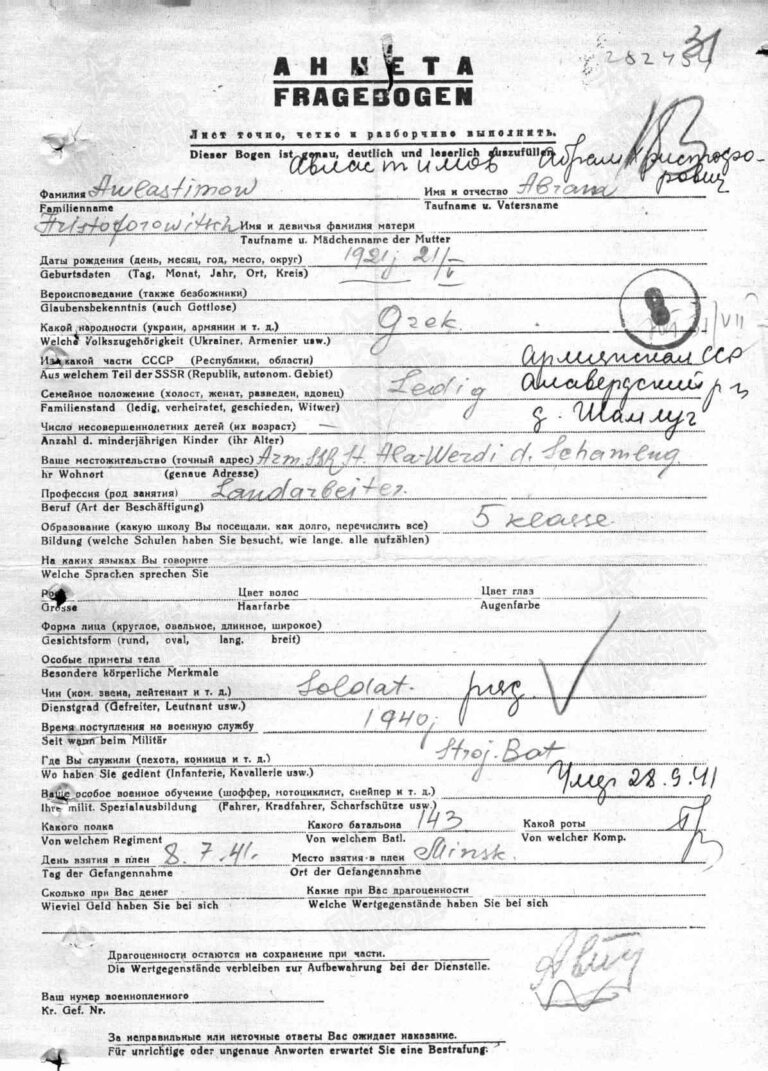 31
АНКЕТА
FRAGEBOGEN
Лист точно, четко и разборчиво выполнить.
Dieser Bogen ist genau, deutlich und leserlich auszufüllen.
Авластимов Абрам Христофо-
рович
Фамилия Awlastimow Имя и отчество Abram
Familienname Taufname u. Vatersname
Hristoforowitsch Имя и девичья фамилия матери
Taufname u. Mädchenname der Mutter
Даты рождения (день, месяц, год, место, округ) 1921j 21/V
Geburtsdaten (Tag, Monat, Jahr, Ort, Kreis)
Вероисповедание (также безбожники)
Glaubensbekenntnis (auch Gottlose)
Какой народности (украин, армянин и т. д.) Grek.
Welche Volkszugehörigkeit (Ukrainer, Armenier usw.)
Из какой части СССР (Республики, области) Армянская ССР
Aus welchem Teil der SSSR (Republik, autonom. Gebiet)
Семейное положение (холост, женат, разведен, вдовец) Ledig Алавердский р-н
Familienstand (ledig, verheiratet, geschieden, Witwer)
д. Шамлуг
Число несовершеннолетних детей (их возраст) —
Anzahl d. minderjährigen Kinder (ihr Alter)
Ваше местожительство (точный адрес) Arm.SSR St Ala-Werdi d. Schamlug
hr Wohnort (genaue Adresse)
Профессия (род занятия) Landarbeiter.
Beruf (Art der Beschäftigung)
Образование (какую школу Вы посещали, как долго, перечислить все) 5 klasse
Bildung (welche Schulen haben Sie besucht, wie lange. alle aufzählen)
На каких языках Вы говорите
Welche Sprachen sprechen Sie
Рост Цвет волос Цвет глаз
Grösse Haarfarbe Augenfarbe
Форма лица (круглое, овальное, длинное, широкое)
Gesichtsform (rund, oval, lang. breit)
Особые приметы тела
Besondere körperliche Merkmale
Чин (ком. звена, лейтенант и т. д.) Soldat. ряд.
Dienstgrad (Gefreiter, Leutnant usw.)
Время поступления на военную службу 1940j
Seit wenn beim Militär
Где Вы служили (пехота, конница и т. д.) Stroj. Bat
Wo haben Sie gedient (Infanterie, Kavallerie usw.)
Умер 28.9.41
Ваше особое военное обучение (шоффер, мотоциклист, снейпер и т. д.)
Ihre milit. Spezialausbildung (Fahrer, Kradfahrer, Scharfschütze usw.)
Какого полка Какого батальона 143 Какой роты
Von welchem Regiment Von welchem Batl. Von welcher Komp.
День взятия в плен 8.7.41. Место взятия в плен Minsk.
Tag der Gefangennahme Ort der Gefangennahme
Сколько при Вас денег Какие при Вас драгоценности
Wieviel Geld haben Sie bei sich Welche Wertgegenstände haben Sie bei sich
Драгоценности остаются на сохранение при части.
Die Wertgegenstände verbleiben zur Aufbewahrung bei der Dienstelle.
Ваш нумер военнопленного
Kr. Gef. Nr.
За неправильные или неточные ответы Вас ожидает наказание.
Für unrichtige oder ungenaue Anworten erwartet Sie eine Bestrafung: